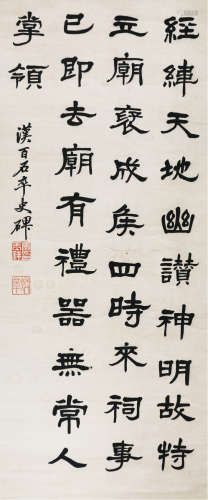 經緯天地幽讚神明故特
立廟襃成矦四時來祠事
已即去廟有禮器無常人
掌領
漢百石卒史碑